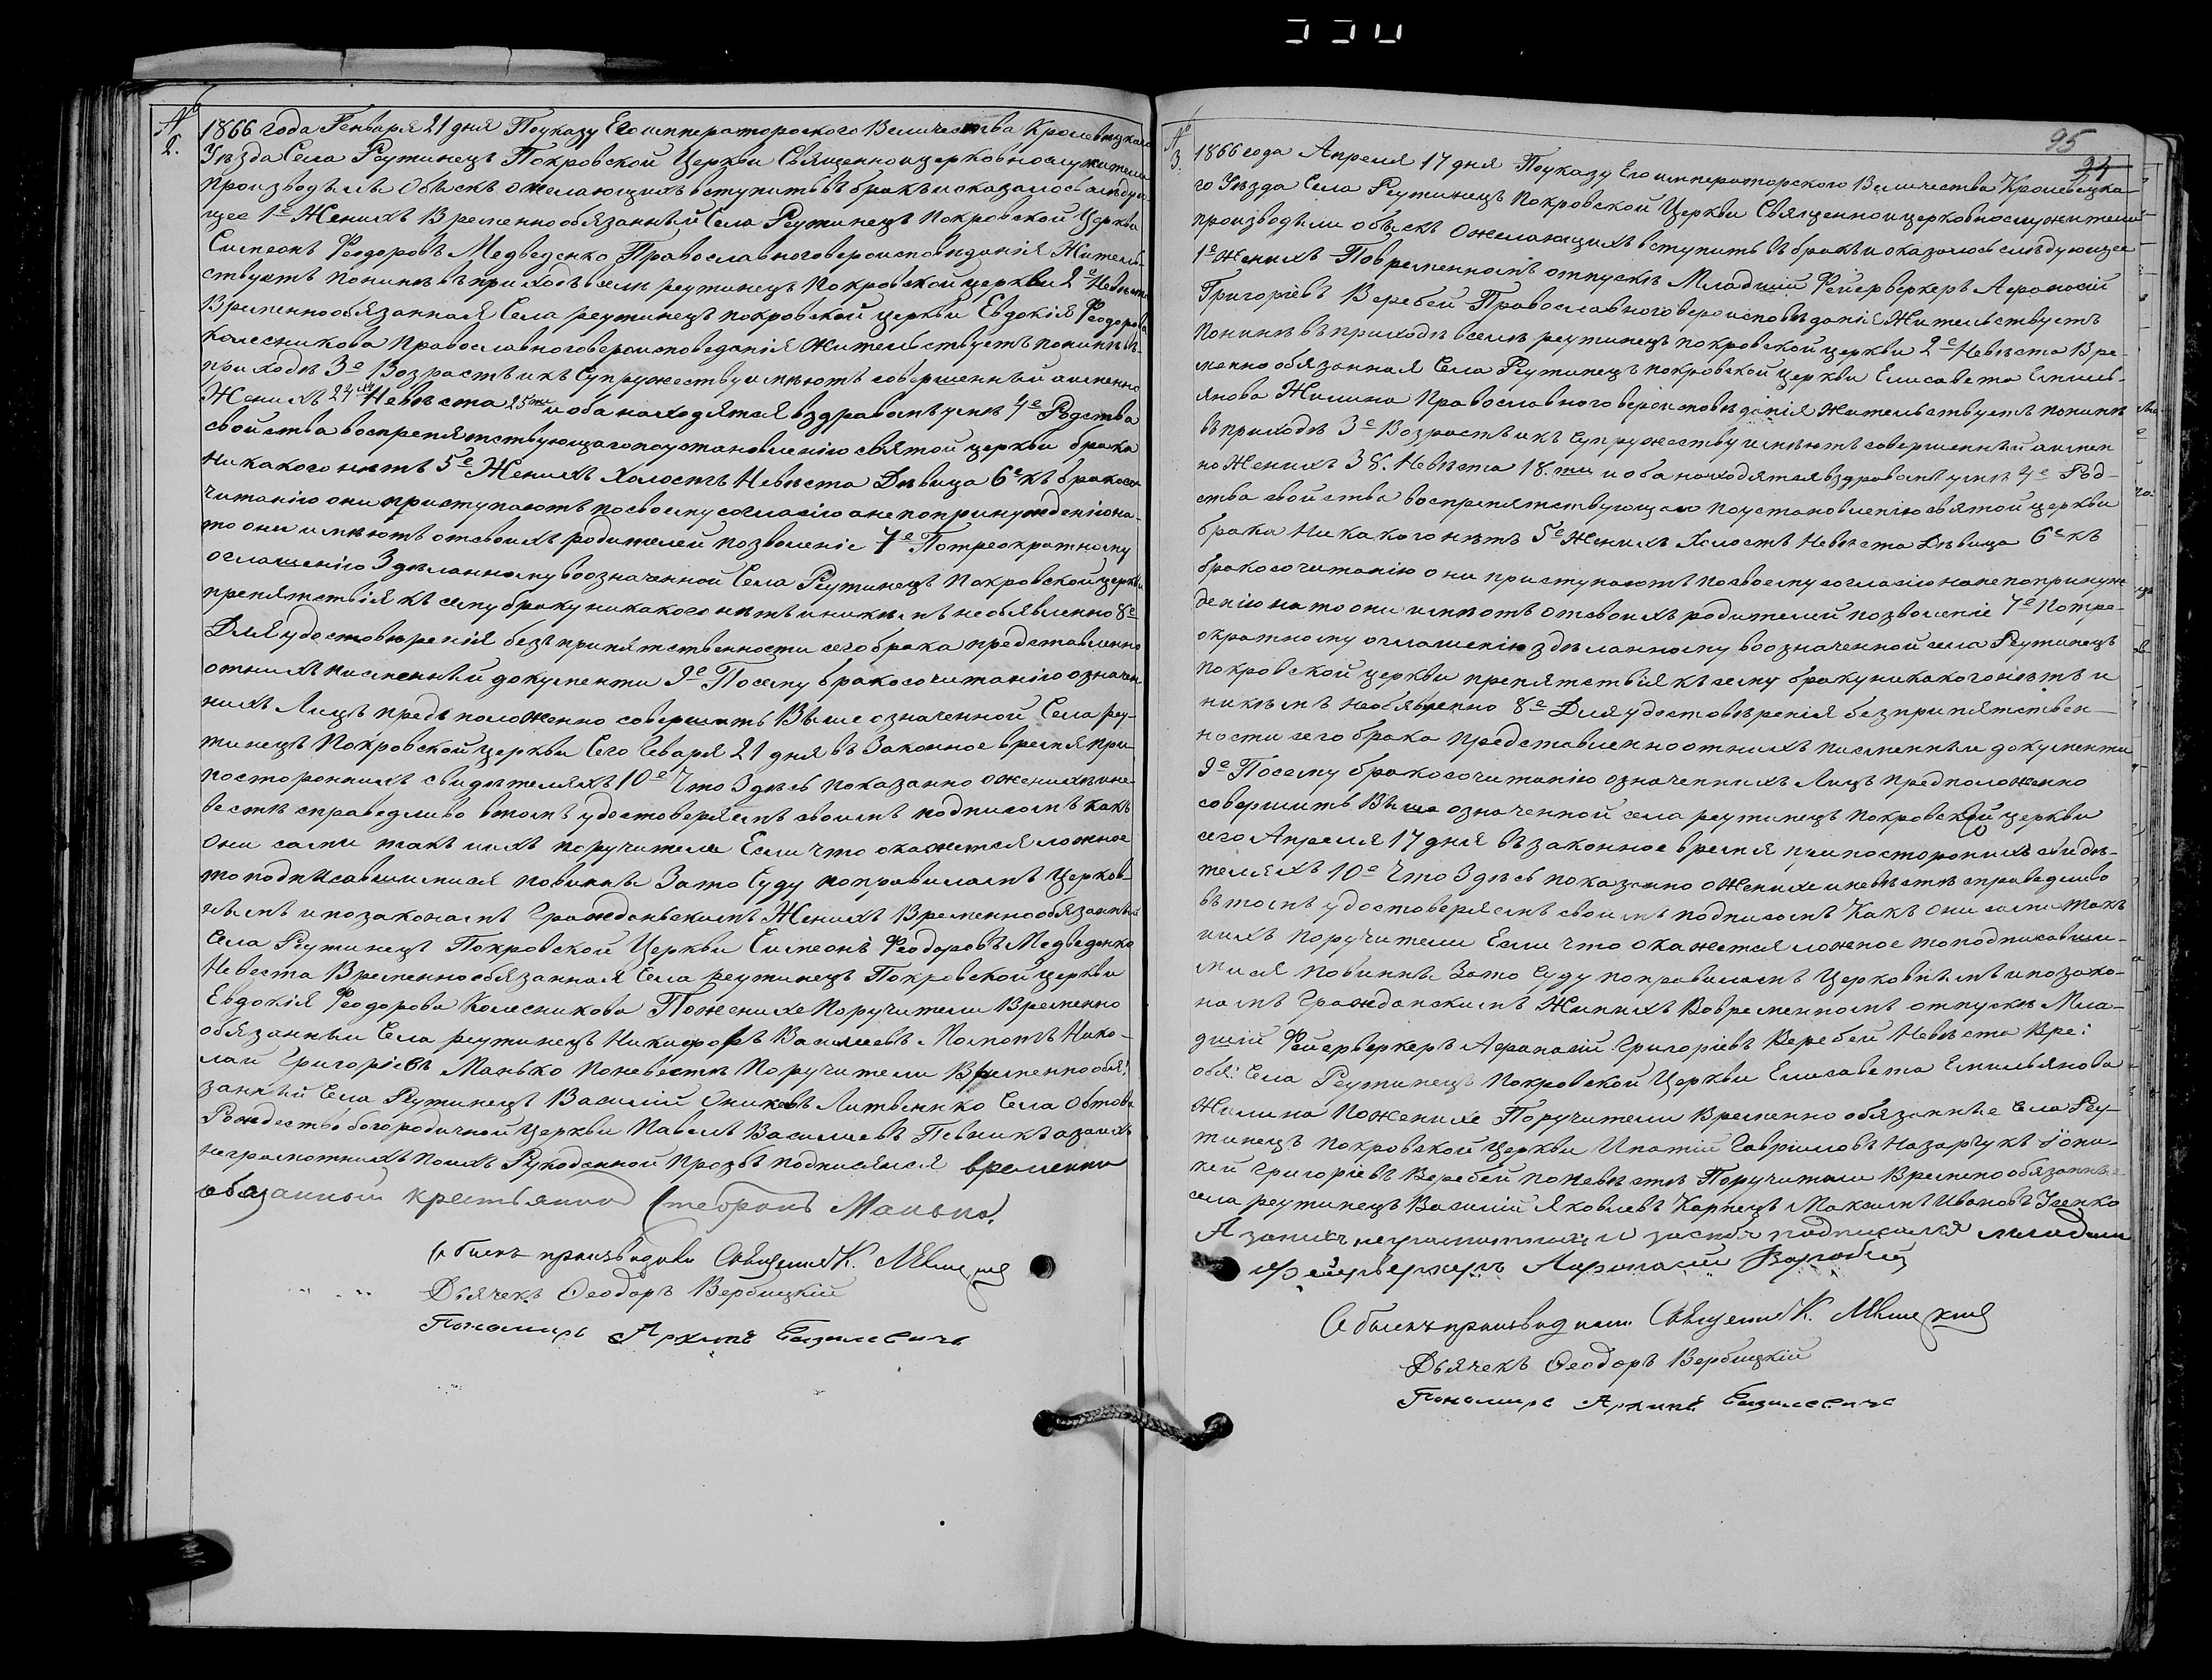 № 2.
1866 года Генваря 21 дня Поуказу Его императорского Величества Кролевецкаго
Уезда Села Реутинецъ Покровской Церкви Священноицерковнослужители
производыли Обыскъ ожелающихъ вступить въ бракъ и оказалось следую-
щее 1е Женихъ Временнообязанный Села Реутинецъ Покровской Церкви
Симеонъ Феодоровъ Медведенко Православноговероисповиданія Житель-
ствуетъ понине въ приходе всели реутинецъ Покровской церкви 2е Невеста
Временнообязанная Села реутинецъ покровской церкви Евдокія Феодорова
Колесникова Православноговероисповеданія жительствуетъ понине въ
приходе 3е Возрастъ икъ Супружеству имеютъ совершенный аименно
Женихъ 24 Невеста 25ти иоба находятся вздравомъ уме 4е Родства
свойства воспрепятствующагопоустановленію святой церкви брака
никакого нетъ 5е Женихъ Холостъ Невеста Девица 6е къ бракосо
читанію они приступаютъ посвоему согласію ане попринужденію на
то они имеютъ отсвоихъ родителей позволеніе 7е Потреократному
оглашенію Зделанному воозначенной Села Реутинецъ Покровской церкви
препятствія къ сему браку никакого нетъ иникемъ необявленно 8е
Для удостоверенія безъприпятственности сего брака представленно
отнихъ писменный документи 9е Посему бракосочитанію означен
нихъ Лицъ предположенно совершить Выше означенной Села реу-
тинецъ Покровской церкви Сего Генваря 21 дня въ Законное время при
посторонныхъ свидетеляхъ 10е Что Здесь показанно оженихе и не-
весте справедливо втомъ удостоверяемъ своимъ подписомъ какъ
Они сами такъ иихъ поручители Если что окажется ложное
то подписавшимися повинны Зато Суду поправиламъ Церков-
нымъ и позаконамъ Гражданьскимъ Женихъ Временнообязанный
Села Реутинецъ Покровской Церкви Симеонъ Феодоровъ Медведенко
Невеста Временнообязанная Села реутинецъ Покровской церкви
Евдокія Феодорова Колесникова Поженихе Поручители Временно
обязанныи Села реутинецъ Никифоръ Василиевъ Нико-
лай Григоріевъ Манько Поневесте Поручители Временнообя:
занный Села Реутинецъ Василій Литвенко Села Обтова
Рождество богородичной Церкви Павелъ Василиевъ Певникъ азаихъ
неграмотнихъ поихъ Рукоданной прозбе подписался временно
обязанный крестьянинъ Манько.
Обыскъ производили Священникъ К.
Дьячекъ Феодоръ Вербицкій
Пономаръ Архипъ Базилевичъ
95
94
№ 3.
1866 года Апреля 17 дня Поуказу Его императорского Величества Кролевецка-
го Уезда Села Реутинецъ Покровской Церкви Священноицерковнослужители
производыли обыскъ Ожелающихъ вступить въ бракъ и оказалось следующее
1е Женихъ Повременномъ отпуске Младший Фейерверкеръ Афанасій
Григоріевъ Веребей Православноговероисповеданія Жительствуетъ
Понине въ приходе вселе реутинецъ покровской церкви 2е Невеста Вре-
менно обязанная Села Реутинецъ покровской церкви Елисавета Емиль-
янова Жилина Православного вероисповеданія жительствуетъ понине
въ приходе 3е Возрастъ икъ Супружеству имеютъ совершенный аимен
но Женихъ 38. Невеста 18.ти и оба находятся вздравомъ уме 4е Род-
ства свойства воспрепятствующаго поустановленію святой церкви
брака Никакого нетъ 5е Женихъ Холостъ Невеста Девица 6е къ
бракосочитанію они приступаютъ посвоему согласію а не попринуж
денію на то они имеютъ отсвоихъ родителей позволеніе 7е Потре-
ократному оглашенію зделанному воозначенной села Реутинецъ
покровской церкви препятствія къ сему браку никакого нетъ и
никемъ необявленно 8е Для удостоверенія безприпятствен-
ности сего брака представленно отнихъ писменныи документи
9е Посему бракосочитанію означеннихъ Лицъ предположенно
совершить Выше означенной села реутинецъ покровской церкви
сего Апреля 17 дня въ законное время при посторонихъ свиде-
теляхъ 10е Что Здесь показанно оЖенихе и невесте справедливо
втомъ удостоверяемъ своимъ подписомъ Какъ они сами такъ
иихъ поручители Если что окажется ложное то подписавши-
мися повинны Зато Суду поправиламъ Церковнымъ и позако-
намъ Гражданскимъ Женихъ Вовременномъ отпуске Мла-
дший Фейерверкеръ Афанасій Григоріевъ Веребей Невеста Вре:
обя: Села Реутинецъ Покровской Церкви Елисавета Емильянова
Жилина Поженихе Поручители Временно обязанные Села Реу-
тинецъ покровской Церкви Ипатій Гавриловъ Назарчукъ Іони-
кей Григоріевъ Веребей поневесте Поручители Времено обязанные
села реутинецъ Василій Яковлевъ Карпецъ Максимъ Ивановъ Усенко
А занихъ неграмотнихъ и засебя подписался младшии
фейерверкеръ Афонасій Воробей
Обыскъ производили Священникъ К.
Дьячекъ Феодоръ Вербицкій
Пономаръ Архипъ Базилевичъ